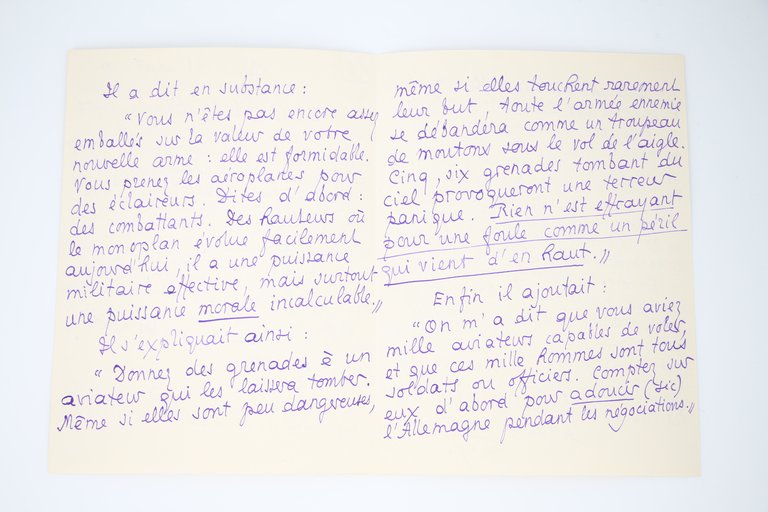 Il a dit en substance :
"Vous n'êtes pas encore assez
emballés sur la valeur de votre
nouvelle arme : elle est formidable.
Vous prenez les aéroplanes pour
des éclaireurs. Dites d'abord :
des combattants. Des hauteurs où
le monoplan évolue facilement
aujourd'hui, il a une puissance
militaire effective, mais surtout
une puissance morale incalculable."
Il s'expliquait ainsi :
"Donnez des grenades à un
aviateur qui les laissera tomber.
Même si elles sont peu dangereuses,
même si elles touchent rarement
leur but, toute l'armée ennemie
se débandera comme un troupeau
de moutons sous le vol de l'aigle.
Cinq, six grenades tombant du
ciel provoqueront une terreur
panique. Rien n'est effrayant
pour une foule comme un péril
qui vient d'en haut."
Enfin il ajoutait :
"On m'a dit que vous aviez
mille aviateurs capables de voler,
et que ces mille hommes sont tous
soldats ou officiers. Comptez sur
eux d'abord pour adoucir (sic)
l'Allemagne pendant les négociations."